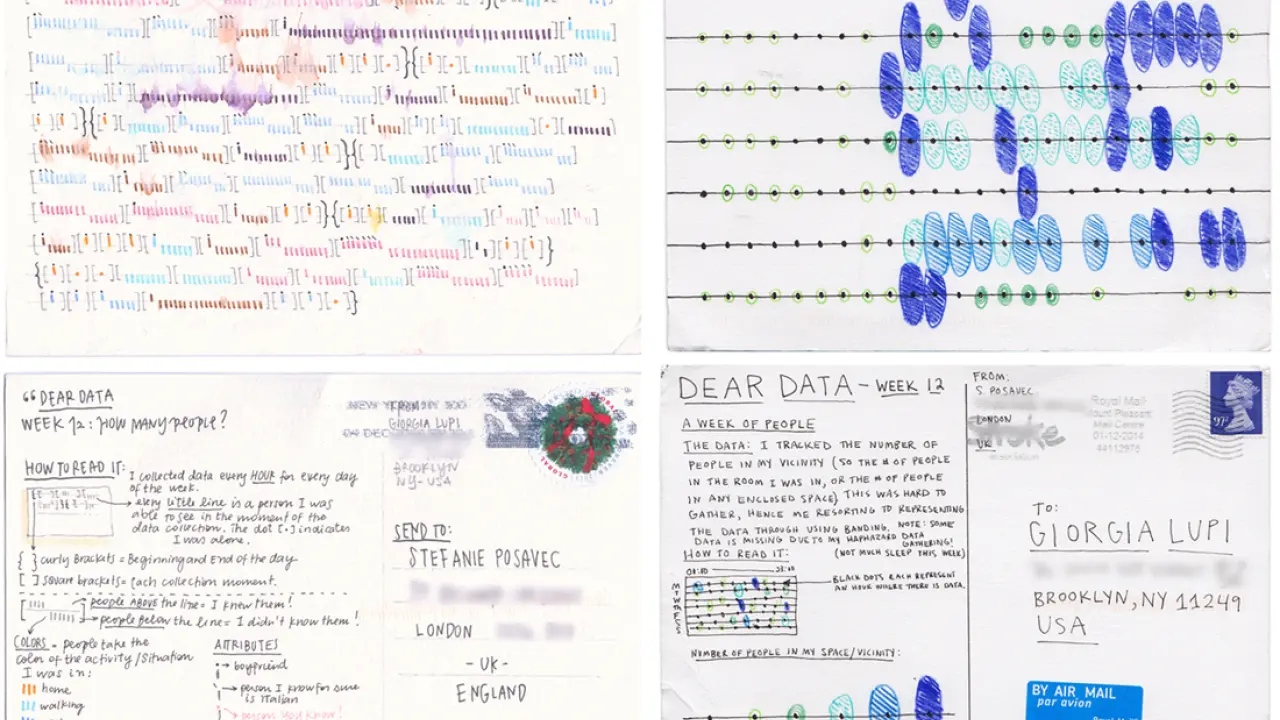 “ DEAR DATA
WEEK 12: HOW MANY PEOPLE?
HOW TO READ IT:
I collected data every HOUR for every day
of the week.
every little line is a person I was
able to see in the moment of the
data collection. The dot [•] indicates
I was alone.
{ } curly Brackets = Beginning and End of the day
[ ] square brackets = Each collection moment.
people ABOVE the line = I knew them!
people below the line = I didn't know them!
COLORS = people take the
color of the activity/situation
I was in:
home
walking
ATTRIBUTES
boyfriend
person I know for sure
is Italian
persons you know!
FROM:
GIORGIA LUPI
BROOKLYN
NY - USA
GLOBAL
SEND TO:
STEFANIE POSAVEC
LONDON
- UK -
ENGLAND
DEAR DATA - WEEK 12
A WEEK OF PEOPLE
THE DATA: I TRACKED THE NUMBER OF
PEOPLE IN MY VICINITY (SO THE # OF PEOPLE
IN THE ROOM I WAS IN, OR THE # OF PEOPLE
IN ANY ENCLOSED SPACE) THIS WAS HARD TO
GATHER, HENCE ME RESORTING TO REPRESENTING
THE DATA THROUGH USING BANDING, NOTE: SOME
DATA IS MISSING DUE TO MY HAPHAZARD DATA
GATHERING!
HOW TO READ IT:
(NOT MUCH SLEEP THIS WEEK)
M
T
W
T
F
S
S
BLACK DOTS EACH REPRESENT
AN HOUR WHERE THERE IS DATA.
NUMBER OF PEOPLE IN MY SPACE/VICINITY:
FROM:
S. POSAVEC
LONDON
UK
Royal Mail
Mount Pleasant
Mail Centre
01-12-2014
44112976
TO:
GIORGIA LUPI
BROOKLYN, NY 11249
USA
BY AIR MAIL
par avion